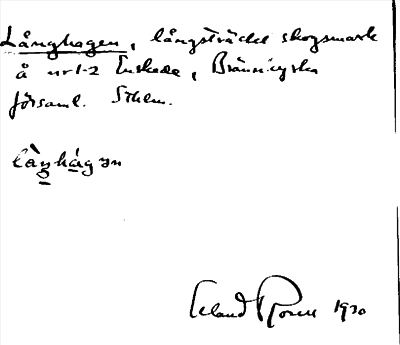 Långhagen, långsträckt skogsmark
å nr 1-2 Enskede, Brännkyrka
församl. Sthlm.
làŋhág ən
Erland Rosell 1930